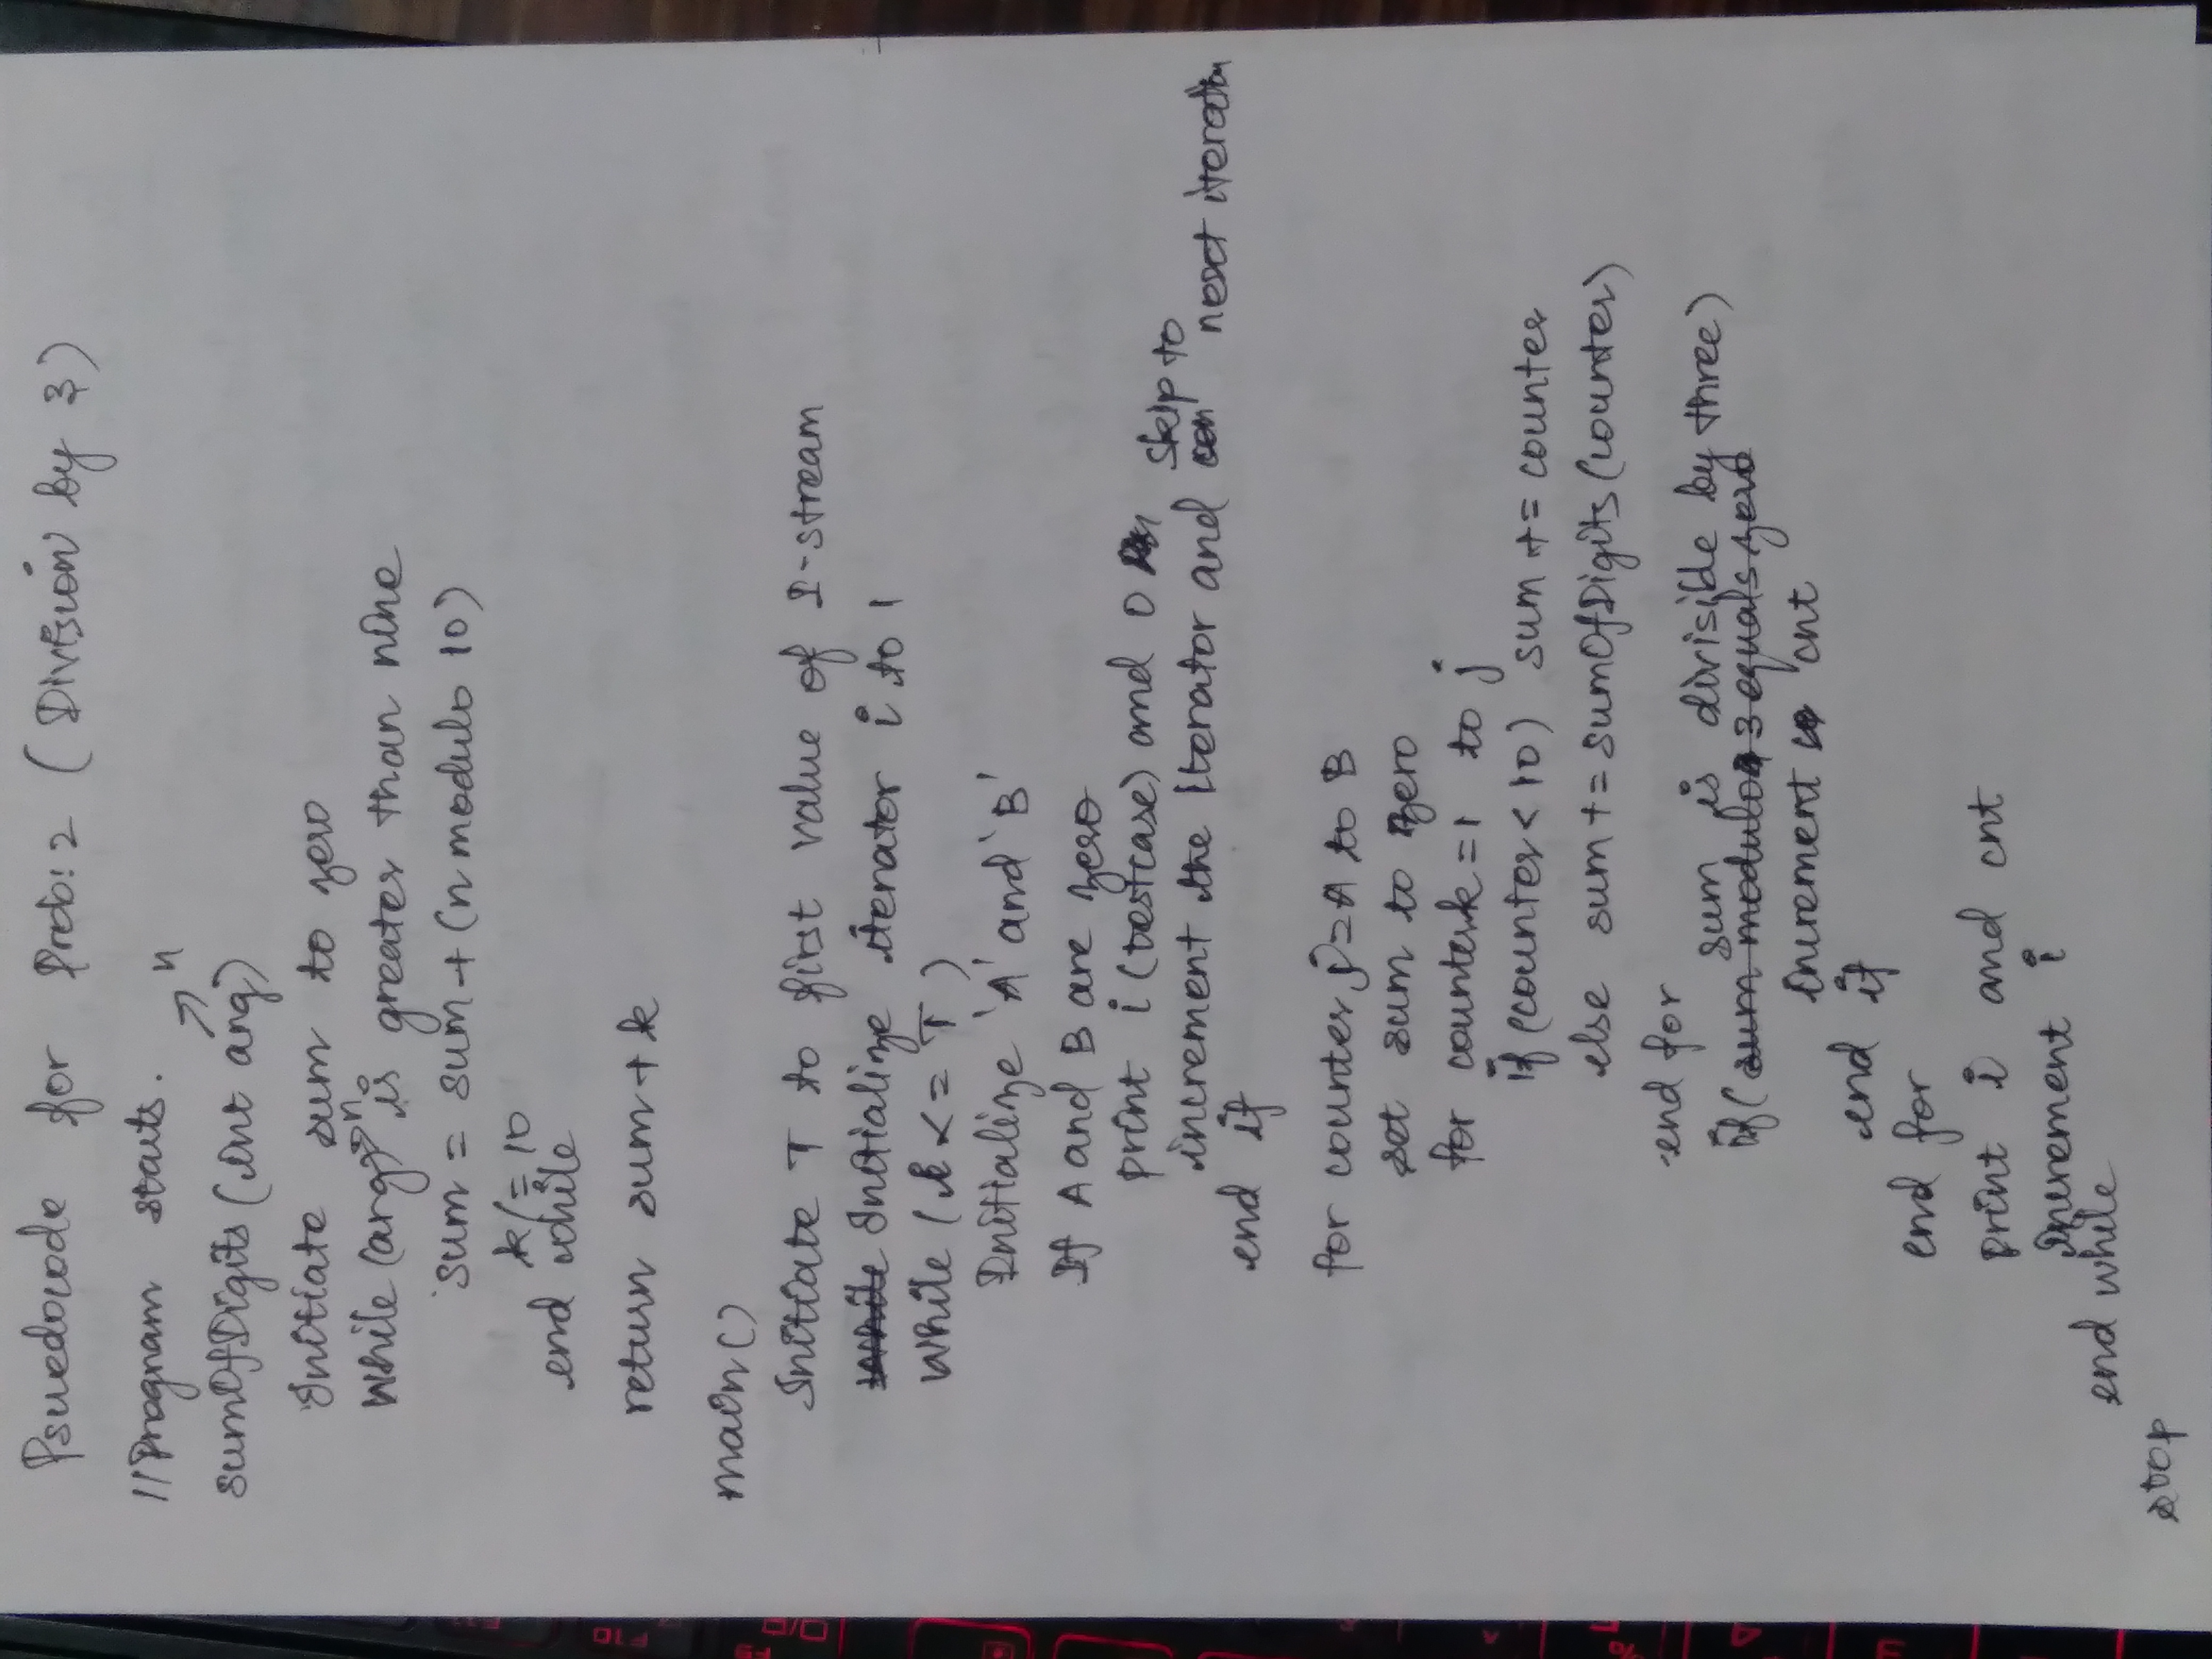 Psuedocode for Prob: 2 (Division by 3)
//Program starts.
n
sumOfDigits (int arg)
Initiate sum to zero
n
While (arg) is greater than nine
sum = sum + (n modulo 10)
k /= 10
end while
return sum + k
main()
Initiate T to first value of I-stream
While Initialize iterator i to 1
While (i <= T)
Initialize 'A' and 'B'
If A and B are zero
print i (testcase) and 0
increment the Iterator and skip to next iteration
end if
for counter j = A to B
set sum to zero
for counter k = 1 to j
if (counter < 10) sum += counter
else sum += sumOfDigits (counter)
end for
sum is divisible by three)
if (sum modulo 3 equals zero
increment cnt
end if
end for
print i and cnt
increment i
end while
stop